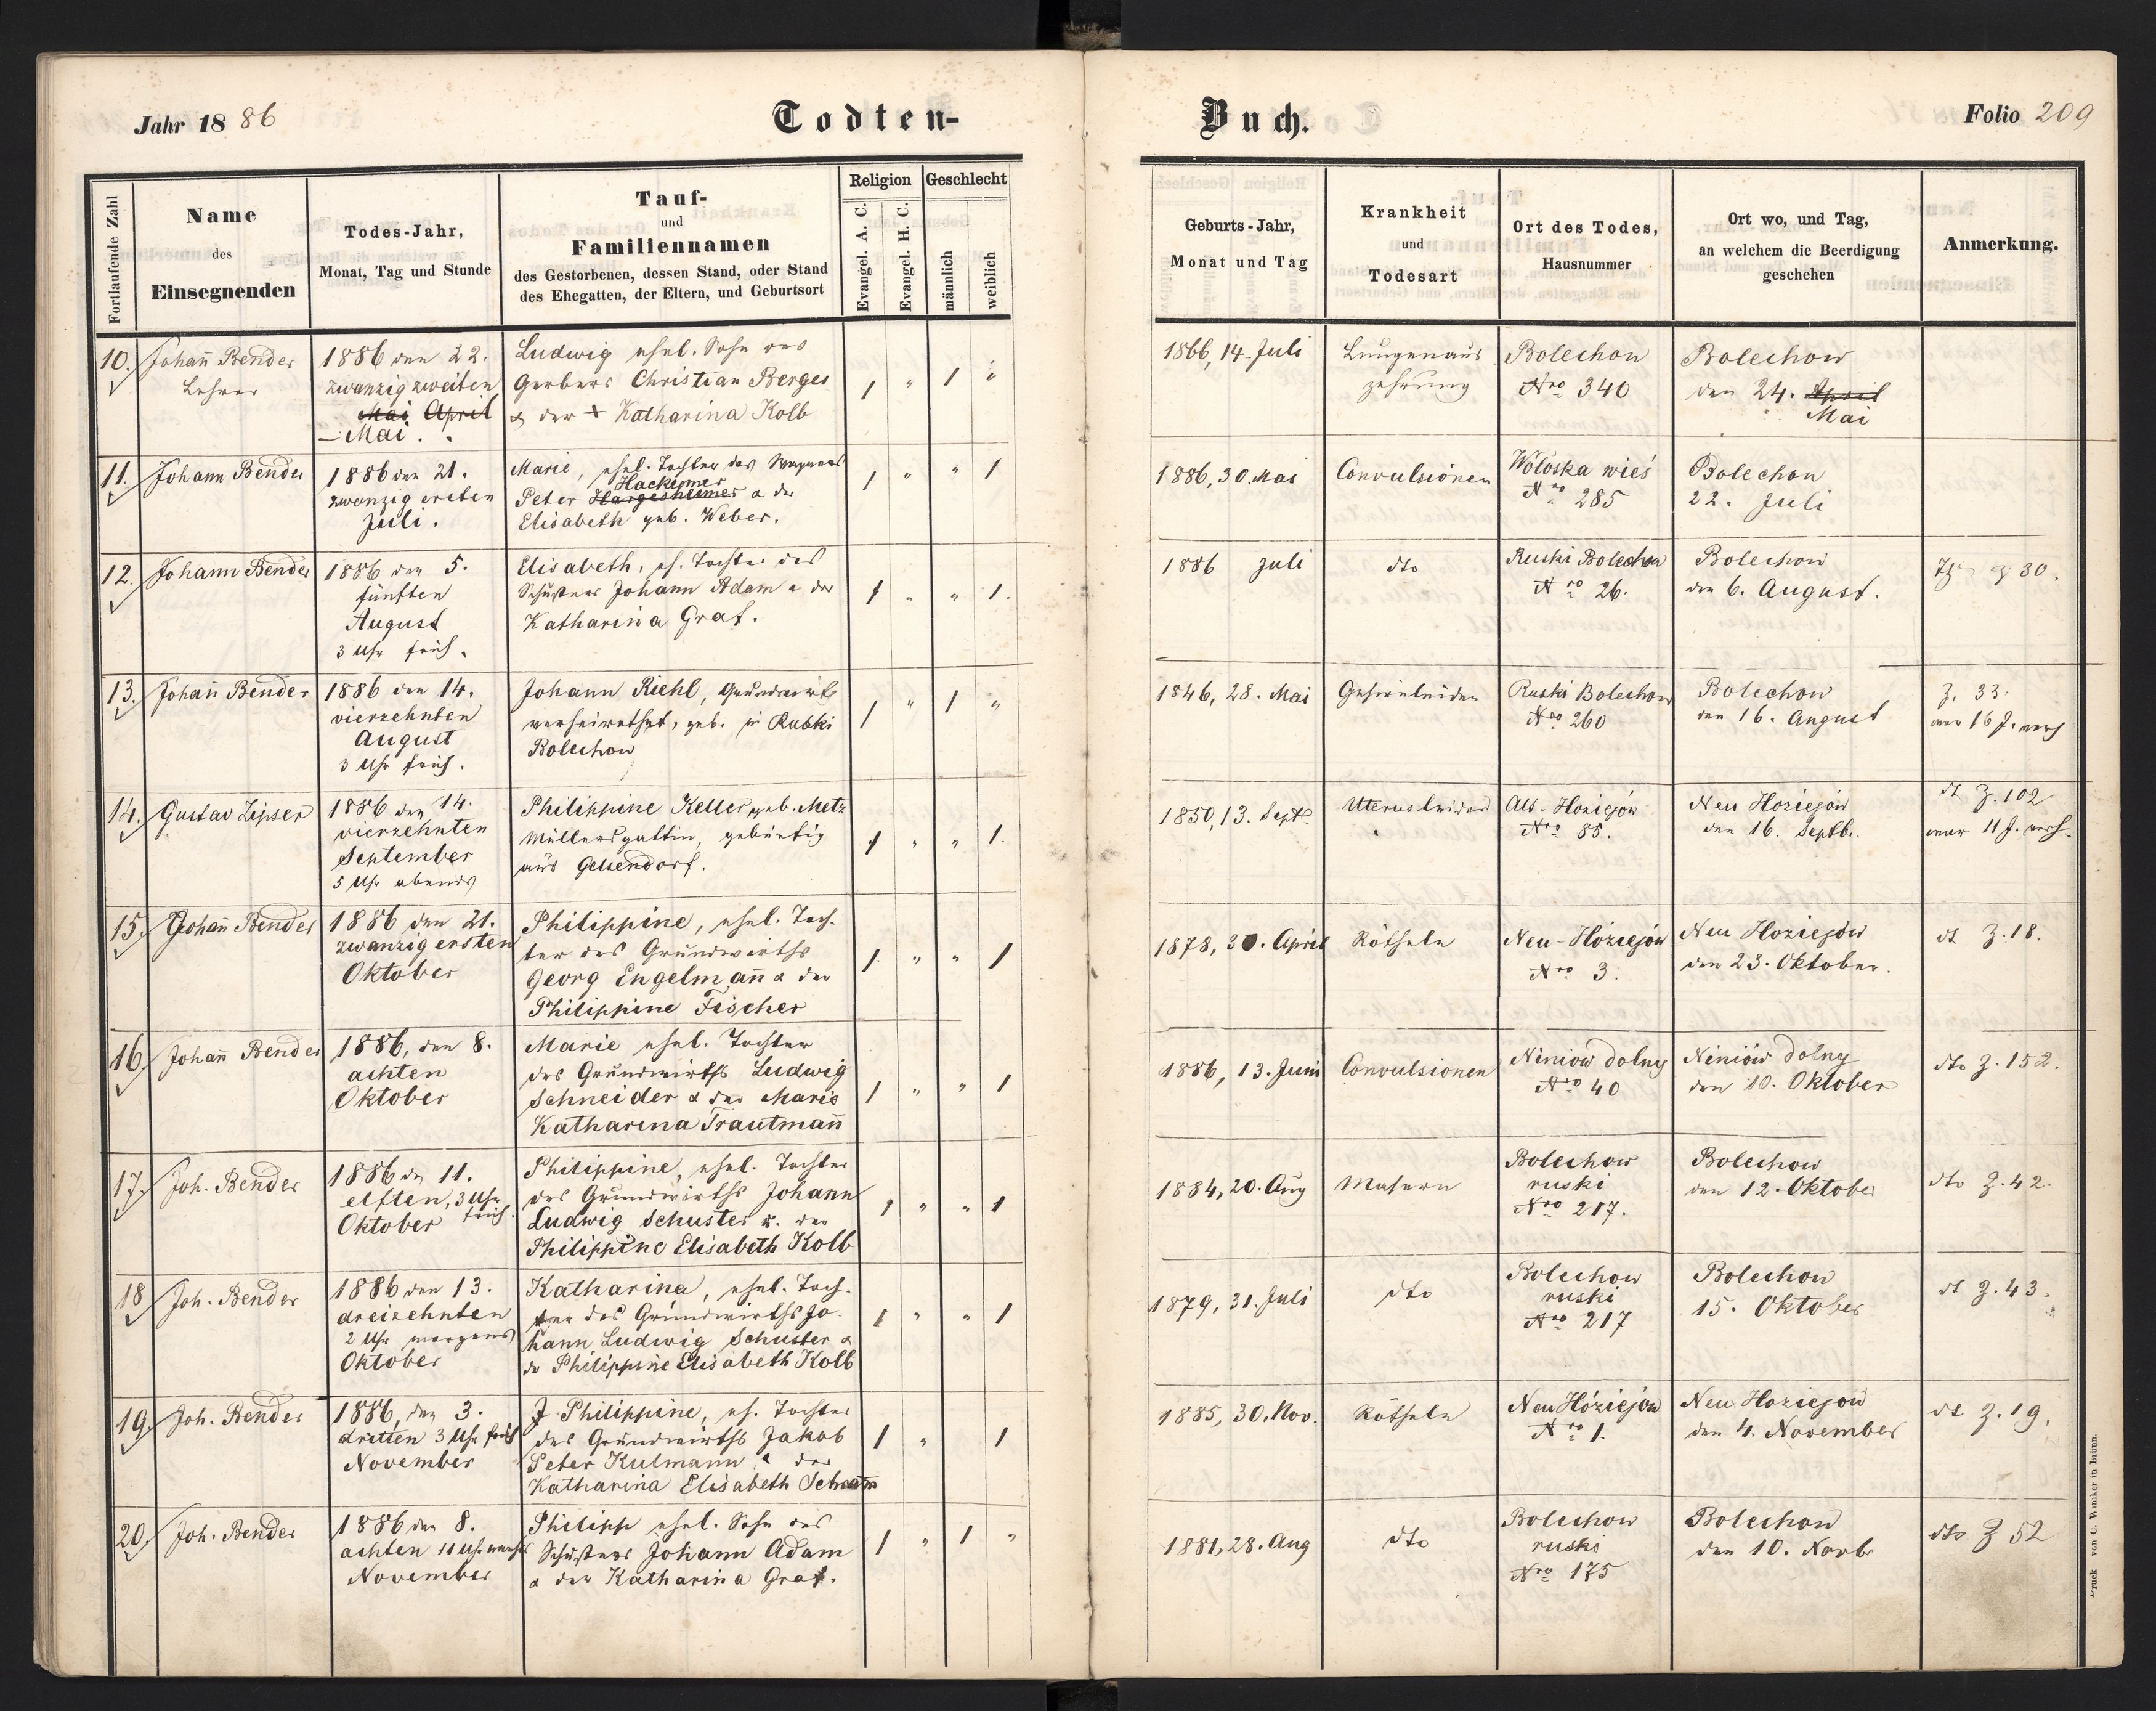 Jahr 1886
Todten-
Buch.
Folio 209
Fortlaufende Zahl
Name
des
Einsegnenden
Todes-Jahr,
Monat, Tag und Stunde
Tauf-
und
Familiennamen
des Gestorbenen, dessen Stand, oder Stand
des Ehegatten, der Eltern, und Geburtsort
Religion
Evangel. A. C.
Evangel. H. C.
Geschlecht
männlich
weiblich
Geburts-Jahr,
Monat und Tag
Krankheit
und
Todesart
Ort des Todes,
Hausnummer
Ort wo, und Tag,
an welchem die Beerdigung
geschehen
Anmerkung.
10.
Johañ Bender
Lehrer
1886 den 22.
zwanzig zweiten
Mai April
Mai.
Ludwig ehel. Sohn des
Gerbers Christian Berges
& der + Katharina Kolb
1 " 1 "
1866, 14. Juli
Lungenaus
zehrung
Bolechow
Nro 340
Bolechow
den 24. April
Mai
11.
Johann Bender
1886 den 21.
zwanzig ersten
Juli.
Marie, ehel. Tochter des
Hackemer
Peter Hargesheimer & der
Elisabeth geb. Weber.
1 " " 1
1886, 30. Mai
Convulsionen
Woloska wieś
Nro 285
Bolechow
22. Juli
12.
Johann Bender
1886 den 5.
fünften
August
3 Uhr früh.
Elisabeth, eh. Tochter des
Schusters Johann Adam & der
Katharina Graf.
1 " " 1.
1886 Juli
dto
Ruski Bolechow
Nro 26.
Bolechow
den 6. August.
30.
13.
Johañ Bender
1886 den 14.
vierzehnten
August
3 Uhr früh.
Johann Riehl, Grundwirth
verheirathet, geb. in Ruski
Bolechow
1 " 1 "
1846, 28. Mai
Gehirnleiden
Ruski Bolechow
Nro 260
Bolechow
den 16. August
Z. 33.
war 16 J. verh
14.
Gustav Zipser
1886 den 14.
vierzehnten
September
5 Uhr abends
Philippine Keller geb. Metz
Müllersgattin, gebürtig
aus Gelsendorf.
1 " " 1.
1850, 13. Sept.
Uterusleiden
Alt-Hoziejów
Nro 85.
Neu Hoziejów
den 16. Septb.
dt Z. 102
war 11 J. verh.
15.
Johañ Bender
1886 den 21.
zwanzig ersten
Oktober
Philippine, ehel. Toch-
ter des Grundwirths
Georg Engelmañ & der
Philippine Fischer
1. " " 1
1878, 30. April
Rötheln
Neu-Hoziejów
Nro 3.
Neu Hoziejów
den 23. Oktober.
dt Z. 18.
16.
Johañ Bender
1886, den 8.
achten
Oktober
Marie ehel. Tochter
des Grundwirths Ludwig
Schneider & der Marie
Katharina Trautmañ
1 " " 1
1886, 13. Juni
Convulsionen
Niniow dolny
Nro 40
Niniów dolny
den 10. Oktober
dto Z. 152.
17.
Joh. Bender
1886 den 11.
elften, 3 Uhr
Oktober früh.
Philippine, ehel. Tochter
des Grundwirths Johann
Ludwig Schuster u. der
Philippine Elisabeth Kolb
1 " " 1
1884, 20. Aug
Masern
Bolechow
ruski
Nro 217.
Bolechow
den 12. Oktober
dto Z. 42.
18
Joh. Bender
1886 den 13.
dreizehnten
2 Uhr morgens
Oktober
Katharina, ehel. Toch-
ter des Grundwirths Jo-
hann Ludwig Schuster &
der Philippine Elisabeth Kolb
1 " " 1
1879, 31. Juli
dto
Bolechow
ruski
Nro 217
Bolechow
15. Oktober
dt Z. 43.
19.
Joh. Bender
1886, den 3.
dritten 3 Uhr früh
November
Philippine, eh. Tochter
des Grundwirths Jakob
Peter Kulmann & der
Katharina Elisabeth
1 " 1
1885, 30. Nov.
Rötheln
Neu Hóziejów
Nro 1.
Neu Hoziejow
den 4. November
dt Z. 19.
20.
Joh. Bender
1886 den 8.
achten 11 Uhr
November
Philipp ehel. Sohn des
Schusters Johann Adam
& der Katharina Graf.
1 " 1 "
1881, 28. Aug
dto
Bolechow
ruski
Nro 175
Bolechow
den 10. Novbr
dto Z 52
Druck von C. Winiker in Brünn.